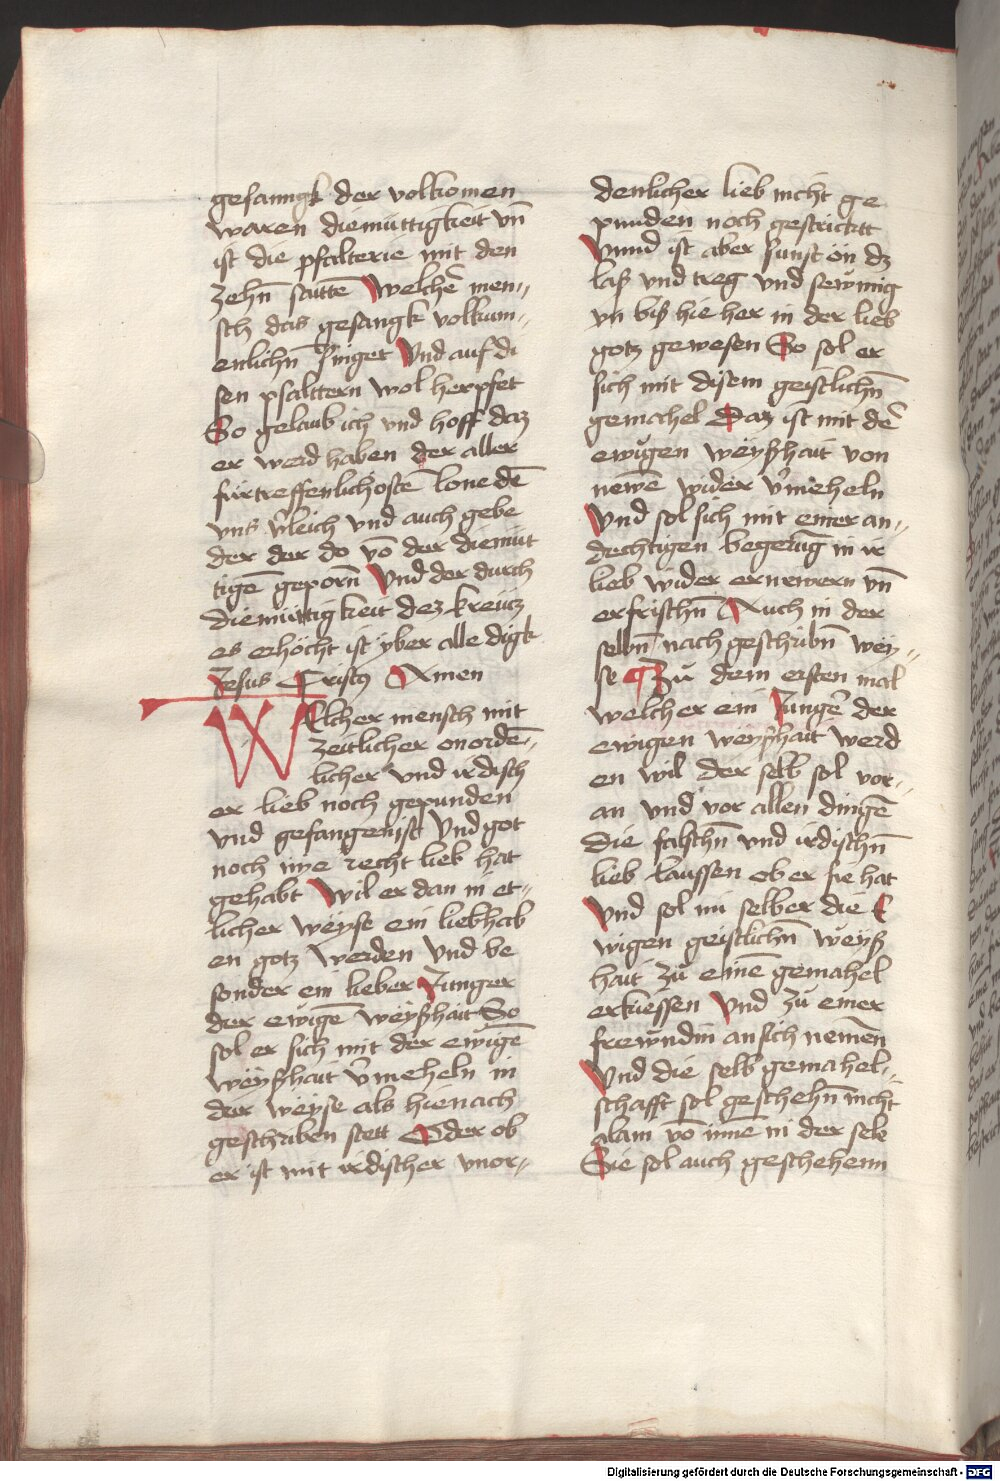 gesanngk der volkomen
waren diemuttigkeit vn̄
ist die psalterie mit den
zehn̄ saittē Welchē men„
sch das gesangk volkum„
enlichn̄ singet Vnd auf di
sen psalttern wol herpfet
So gelaub ich vnd hoff daz
er werd haben der aller
furtreffenlichostē lone dē
vns v̄leich vnd auch gebe
der der do vō der diemut
tigē geporn̄ Vnd der durch
diemuttigkeit dez kreutz
es erhöcht ist yber alle digk
Jesus Cristꝰ Amen
WElcher mensch mit
zeitlicher onordē„
licher vnd irdisch
er lieb noch gepunden
vnd gefangen ist Vnd got
noch nye recht lieb hat
gehabt Wil er dan in et„
licher weyse ein liebhab
en gotz werden Vnd be
sonder ein lieber Junger
der ewigē weyßhait So
sol er sich mit der ewigē
weyßhait v̄meheln in
der weyse als hienach
geschriben stett Oder ob
er ist mit irdischer vnor„
denlicher lieb nicht ge
punden noch gestricktt
Vnnd ist aber sunst ön dz
laß vnd treg vnd sewmig
vn̄ biß hie her in der lieb
gotz gewesen So sol er
sich mit disem geistlichn̄
gemahel Daz ist mit dē
ewigen weyßhait von
newē wider v̄meheln
Vnd sol sich mit einer an„
dechtigen begerūg in ir
lieb wider ernewern vn̄
erfrischn̄ Auch in der
selbn̄ nach geschribn̄ wey„
se ¶ Zu dem ersten mal
welcher ein Jungē der
ewigen weyßhait werd
en wil der selb sol vor„
an vnd vor allen dingē
die falschn̄ vnd irdischn̄
lieb laussen ob er sie hat
Vnd sol im selber die E
wigen geistlichn̄ weyß
hait zu einē gemahel
erkiessen Vnd zu einer
frewndin an sich nemen
Vnd die selb gemahel„
schafft sol geschehn̄ nicht
alain vō innē in der sele
Sie sol auch geschehenn
Digitalisierung gefördert durch die Deutsche Forschungsgemeinschaft - DFG